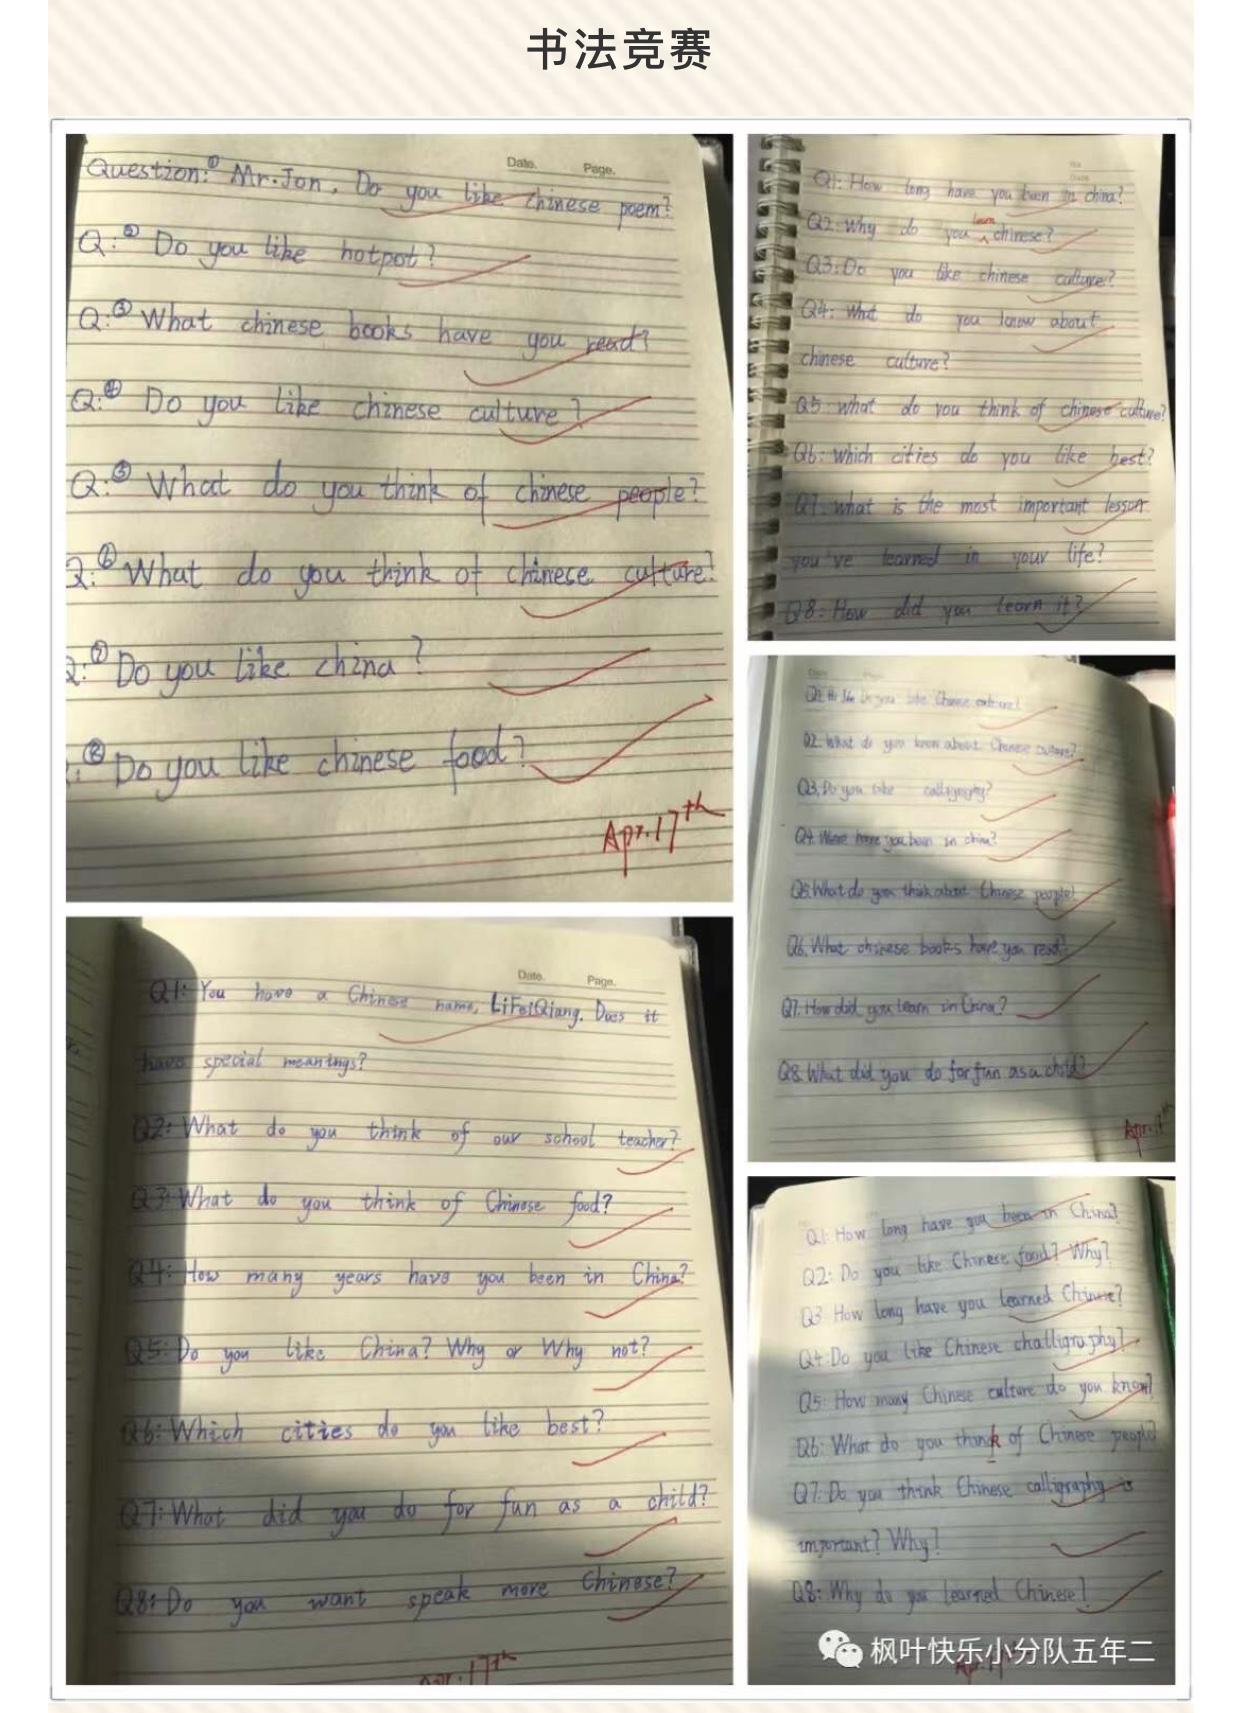 书法竞赛
Date. Page.
Question:① Mr.Jon, Do you like chinese poem?
Q:② Do you like hotpot?
Q:③ What chinese books have you read?
Q:④ Do you like chinese culture?
Q:⑤ What do you think of chinese people?
Q:⑥ What do you think of chinese culture?
Q:⑦ Do you like china?
⑧ Do you like chinese food?
Apr.17th
Q1: How long have you been in china?
learn
Q2: Why do you chinese?
Q3: Do you like chinese culture?
Q4: What do you know about
chinese culture?
Q5: what do you think of chinese culture?
Q6: which cities do you like best?
Q7: what is the most important lesson
you've learned in your life?
Q8: How did you learn it?
Do you like Chinese culture?
Q2. What do you know about Chinese culture?
Q3. Do you like
Q4. Where have you been in china?
Q5. What do you think about Chinese people?
Q6. What chinese books have you read?
Q7. How did you learn in China?
Q8. What did you do for fun as a child?
Apr.17th
Date. Page.
Q1: You have a Chinese name, LiFeiQiang. Does it
have special meanings?
Q2: What do you think of our school teacher?
Q3: What do you think of Chinese food?
Q4: How many years have you been in China?
Q5: Do you like China? Why or Why not?
Q6: Which cities do you like best?
Q7: What did you do for fun as a child?
Q8: Do you want speak more Chinese?
Apr.17th
Q1: How long have you been in China?
Q2: Do you like Chinese food? Why?
Q3 How long have you learned Chinese?
Q4: Do you like Chinese challigraphy?
Q5: How many Chinese culture do you know?
Q6: What do you think of Chinese people?
Q7: Do you think Chinese calligraphy is
important? Why?
Q8: Why do you learned Chinese?
枫叶快乐小分队五年二